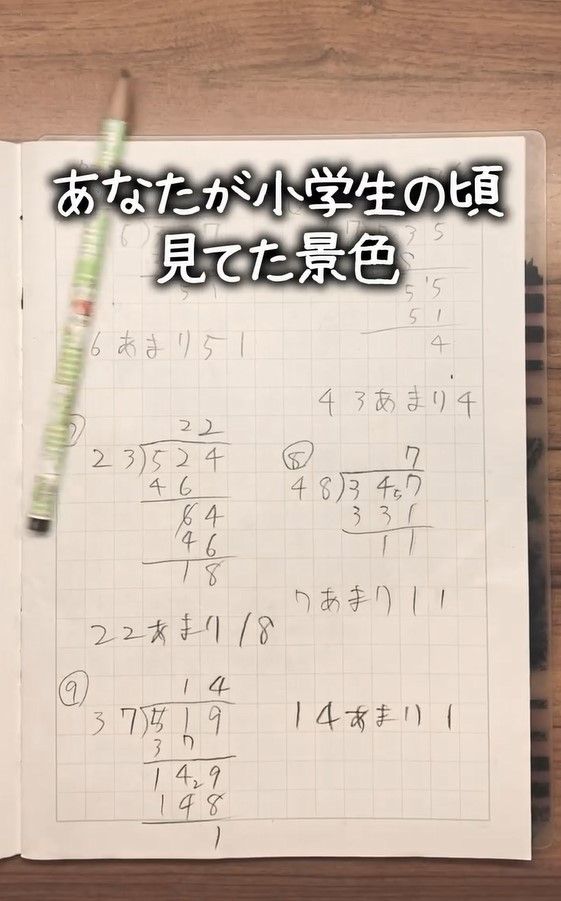 あなたが小学生の頃
見てた景色
35
55
51
51
4
6あまり51
43あまり4
22
23)524
46
64
46
18
22あまり18
⑧
7
48)347
331
11
7あまり11
⑨
14
37)519
37
149
148
1
14あまり1